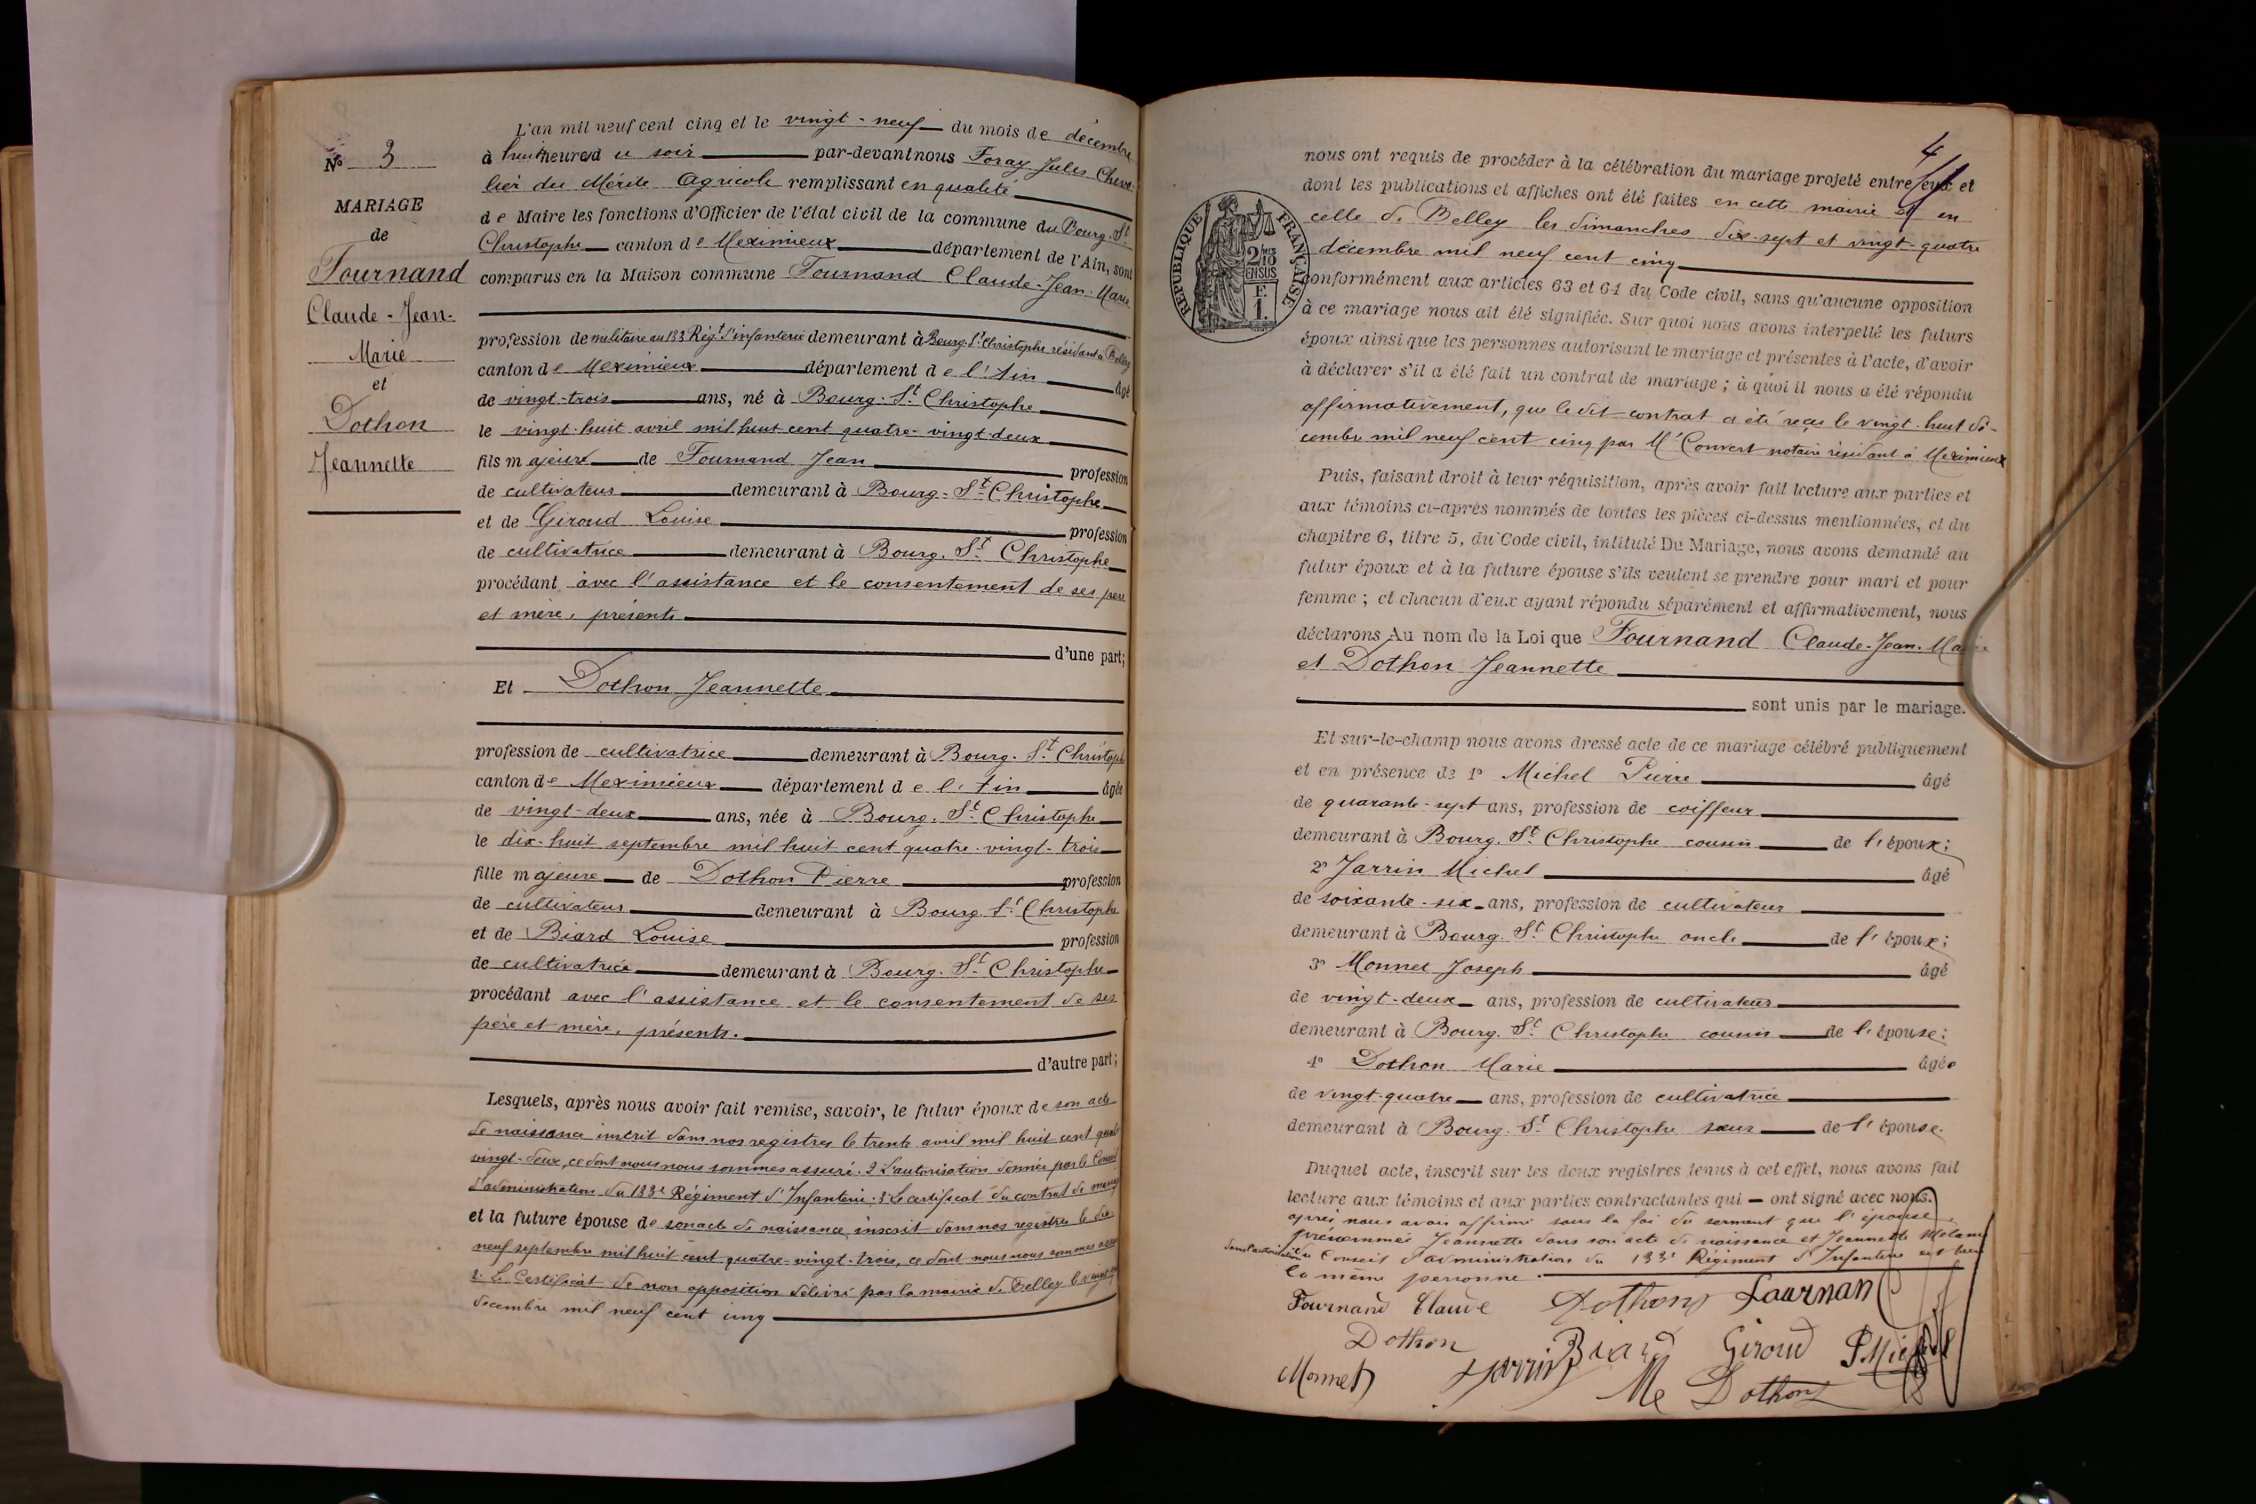 L'an mil neuf cent cinq et le vingt-neuf du mois de décembre
à huit heures du soir par-devant nous Foray Jules Cheva-
lier du Mérite Agricole remplissant en qualité
de Maire les fonctions d'Officier de l'état civil de la commune du Bourg-St
Christophe canton de Meximieux département de l'Ain, sont
comparus en la Maison commune Fournand Claude-Jean-Marie
profession de militaire au 133 Régt d'infanterie demeurant à Bourg-St-Christophe résidant à Belley
canton de Meximieux département de l'Ain âgé
de vingt-trois ans, né à Bourg-St Christophe
le vingt-huit avril mil huit cent quatre-vingt-deux
fils majeur de Fournand Jean profession
de cultivateur demeurant à Bourg-St-Christophe
et de Giroud Louise profession
de cultivatrice demeurant à Bourg-St-Christophe
procédant avec l'assistance et le consentement de ses père
et mère, présents
d'une part;
Et Dothon Jeannette
profession de cultivatrice demeurant à Bourg-St-Christophe
canton de Meximieux département de l'Ain âgée
de vingt-deux ans, née à Bourg-St-Christophe
le dix-huit septembre mil huit cent quatre-vingt-trois
fille majeure de Dothon Pierre profession
de cultivateur demeurant à Bourg St Christophe
et de Biard Louise profession
de cultivatrice demeurant à Bourg-St-Christophe
procédant avec l'assistance et le consentement de ses
père et mère, présents.
d'autre part;
Lesquels, après nous avoir fait remise, savoir, le futur époux de son acte
de naissance inscrit dans nos registres le trente avril mil huit cent quatre
vingt-deux, ce dont nous nous sommes assuré. 2 L'autorisation donnée par le Conseil
d'administration du 133e Régiment d'Infanterie. 3 Le certificat du contrat de mariage
et la future épouse de son acte de naissance inscrit dans nos registres le dix
neuf septembre mil huit cent quatre-vingt-trois, ce dont nous nous sommes assuré
2. Le Certificat de non opposition délivré par la mairie de Belley le vingt
décembre mil neuf cent cinq
No 3
MARIAGE
de
Fournand
Claude-Jean-
Marie
et
Dothon
Jeannette
4
nous ont requis de procéder à la célébration du mariage projeté entre eux et
dont les publications et affiches ont été faites en cette mairie et en
celle de Belley les dimanches dix-sept et vingt-quatre
décembre mil neuf cent cinq
conformément aux articles 63 et 64 du Code civil, sans qu'aucune opposition
à ce mariage nous ait été signifiée. Sur quoi nous avons interpellé les futurs
époux ainsi que les personnes autorisant le mariage et présentes à l'acte, d'avoir
à déclarer s'il a été fait un contrat de mariage; à quoi il nous a été répondu
affirmativement, que ledit contrat a été reçu le vingt-huit dé-
cembre mil neuf cent cinq par Me Convert notaire résidant à Meximieux
Puis, faisant droit à leur réquisition, après avoir fait lecture aux parties et
aux témoins ci-après nommés de toutes les pièces ci-dessus mentionnées, et du
chapitre 6, titre 5, du Code civil, intitulé Du Mariage, nous avons demandé au
futur époux et à la future épouse s'ils veulent se prendre pour mari et pour
femme; et chacun d'eux ayant répondu séparément et affirmativement, nous
déclarons Au nom de la Loi que Fournand Claude-Jean-Marie
et Dothon Jeannette
sont unis par le mariage.
Et sur-le-champ nous avons dressé acte de ce mariage célébré publiquement
et en présence de 1º Michel Pierre âgé
de quarante-sept ans, profession de coiffeur
demeurant à Bourg-St-Christophe cousin de l'époux;
2º Jarrin Michel âgé
de soixante-six ans, profession de cultivateur
demeurant à Bourg-St Christophe oncle de l'époux;
3º Monnet Joseph âgé
de vingt-deux ans, profession de cultivateur
demeurant à Bourg-St Christophe cousin de l'épouse;
4º Dothon Marie âgée
de vingt-quatre ans, profession de cultivatrice
demeurant à Bourg-St-Christophe sœur de l'épouse.
Duquel acte, inscrit sur les deux registres tenus à cet effet, nous avons fait
lecture aux témoins et aux parties contractantes qui ont signé avec nous.
après nous avoir affirmé sous la foi du serment que l'épouse
prénommée Jeannette dans son acte de naissance et Jeannette
dans l'autorisation du Conseil d'administration du 133e Régiment d'Infanterie est bien
la même personne.
Fournand Claude Dothon Fournan
Dothon Biard Giroud P Michel
Monnet Jarrin Me Dothon
RÉPUBLIQUE FRANÇAISE
2/10 EN SUS
F.
1.